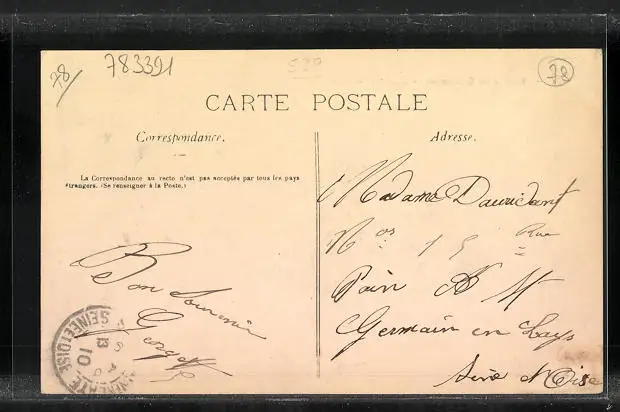 78
783391
78
CARTE POSTALE
Correspondance.
Adresse.
La Correspondance au recto n'est pas acceptée par tous les pays
étrangers. (Se renseigner à la Poste.)
Madame
Nos 15 Rue
Pain
Germain en Laye
Seine et Oise
Bon Souvenir
SEINE ET OISE
13
10